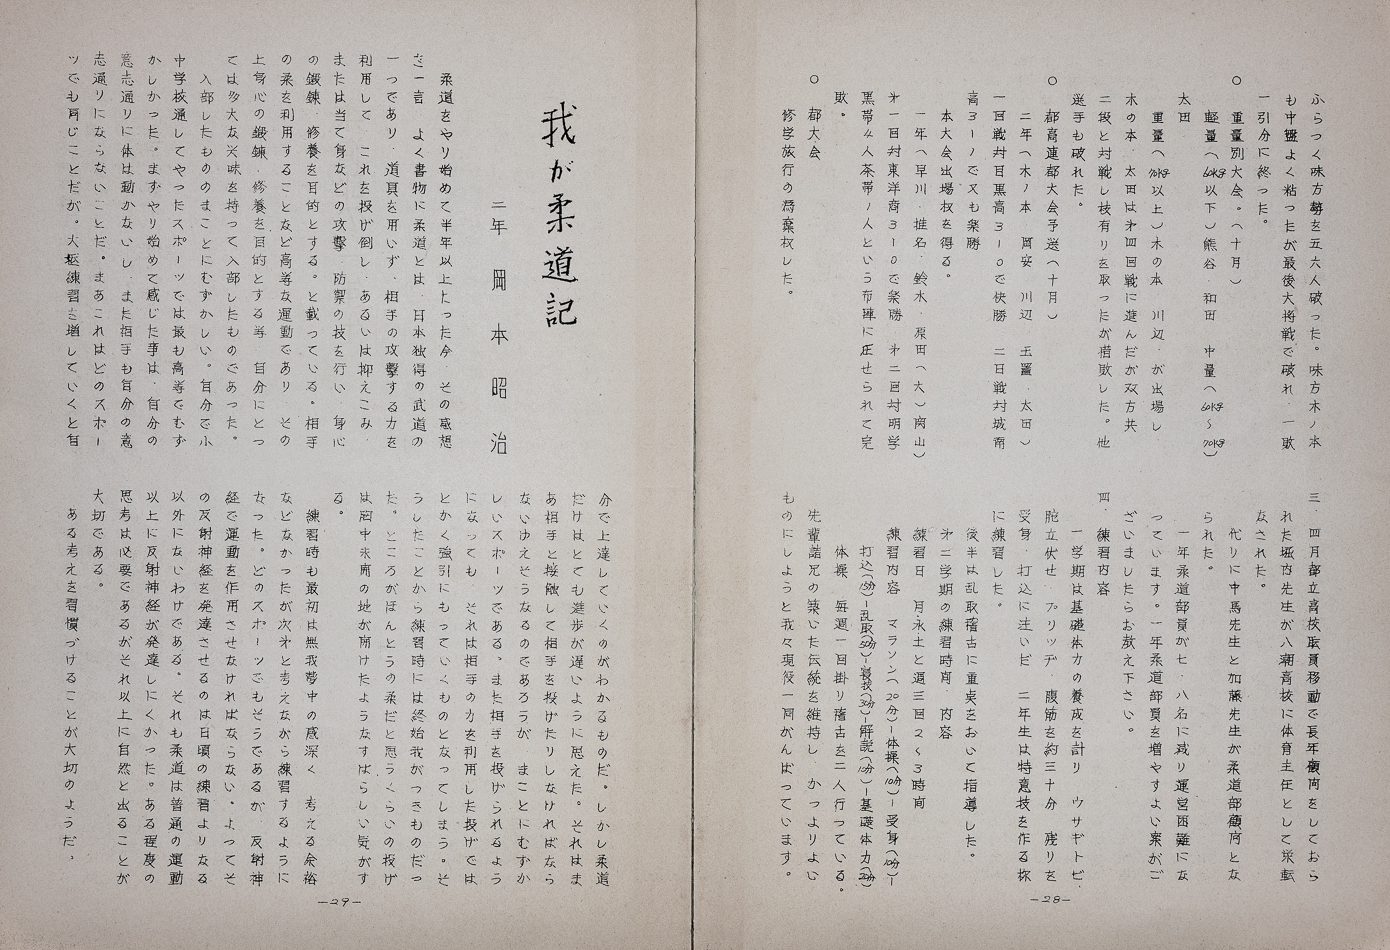 ふらつく味方勢を五六人破った。味方木ノ本
も中盤よく粘ったが最後大将戦で破れ、一敗
一引分に終った。
○ 重量別大会。(十月)
軽量(60kg以下)熊谷・和田 中量(60kg〜70kg)
太田
重量(70kg以上)木の本 川辺 が出場し
木の本、太田は才四回戦に進んだが双方共
二段と対戦し技有りを取ったが惜敗した。他
選手も破れた。
○ 都高連都大会予選(十月)
二年(木ノ本 川辺 太田)
一回戦対目黒高3—0で快勝 二回戦対城南
高3—1で又も楽勝
本大会出場权を得る。
一年(早川・椎名・鈴木・原田(大)南山)
才一回対東洋商3—0で楽勝 才二回対明学
黒帯4人茶帯1人という布陣に圧せられて完
敗。
○ 都大会
修学旅行の為棄权した。
三、四月都立高校教員移動で長年顧問をしておら
れた堀内先生が八潮高校に体育主任として栄転
なされた。
代りに中馬先生と加藤先生が柔道部顧問とな
られた。
一年柔道部員が七・八名に減り運営困難にな
っています。一年柔道部員を増やすよい案がご
ざいましたらお教え下さい。
四、練習内容
一学期は基礎体力の養成を計り ウサギトビ、
腕立伏せ ブリッヂ 腹筋を約三十分 残りを
受身・打込に注いだ 二年生は特意技を作る様
に練習した。
後半は乱取稽古に重点をおいて指導した。
才二学期の練習時間 内容
練習日 月水土と週三回2〜3時間
練習内容 マラソン(20分)—体操(10分)—受身(10分)—
打込(15分)—乱取(30分)—寝技(20分)—解説(10分)—基礎体力(20分)
体操 毎週一回掛り稽古を二人行っている。
先輩諸兄の築いた伝統を維持し かつよりよい
ものにしようと我々現役一同がんばっています。
—28—
我が柔道記
二年 岡本昭治
柔道をやり始めて半年以上たった今、その感想
を一言 よく書物に柔道とは、日本独得の武道の
一つであり、道具を用いず、相手の攻撃する力を
利用して これを投げ倒し、あるいは抑えこみ、
または当て身などの攻撃、防禦の技を行い、身心
の鍛錬、修養を目的とする。と載っている。相手
の柔を利用することなど高等な運動であり その
上身心の鍛錬、修養を目的とする等 自分にとっ
ては多大な興味を持って入部したものであった。
入部したもののまことにむずかしい。自分で小
中学校通してやったスポーツでは最も高等でむず
かしかった。まずやり始めて感じた事は、自分の
意志通りに体は動かないし、また相手も自分の意
志通りにならないことだ。まあこれはどのスポー
ツでも同じことだが。大抵練習を増していくと自
分で上達していくのがわかるものだ。しかし柔道
だけはとても進歩が遅いように思えた。それはま
あ相手と接触して相手を投げたりしなければなら
ないゆえそうなるのであろうが、まことにむずか
しいスポーツである。また相手を投げられるよう
になっても、それは相手の力を利用した投げでは
とかく強引にもっていくものとなってしまう。そ
うしたことから練習時には終始我がつきものだっ
た。ところがほんとうの柔だと思うくらいの投げ
は胸中未開の地が開けたようなすばらしい気がす
る。
練習時も最初は無我夢中の感深く 考える余裕
などなかったが次才と考えながら練習するように
なった。どのスポーツでもそうであるが 反射神
経で運動を作用させなければならない。よってそ
の反射神経を発達させるのは日頃の練習よりなる
以外にないわけである。それも柔道は普通の運動
以上に反射神経が発達しにくかった。ある程度の
思考は必要であるがそれ以上に自然と出ることが
大切である。
ある考えを習慣づけることが大切のようだ。
—29—